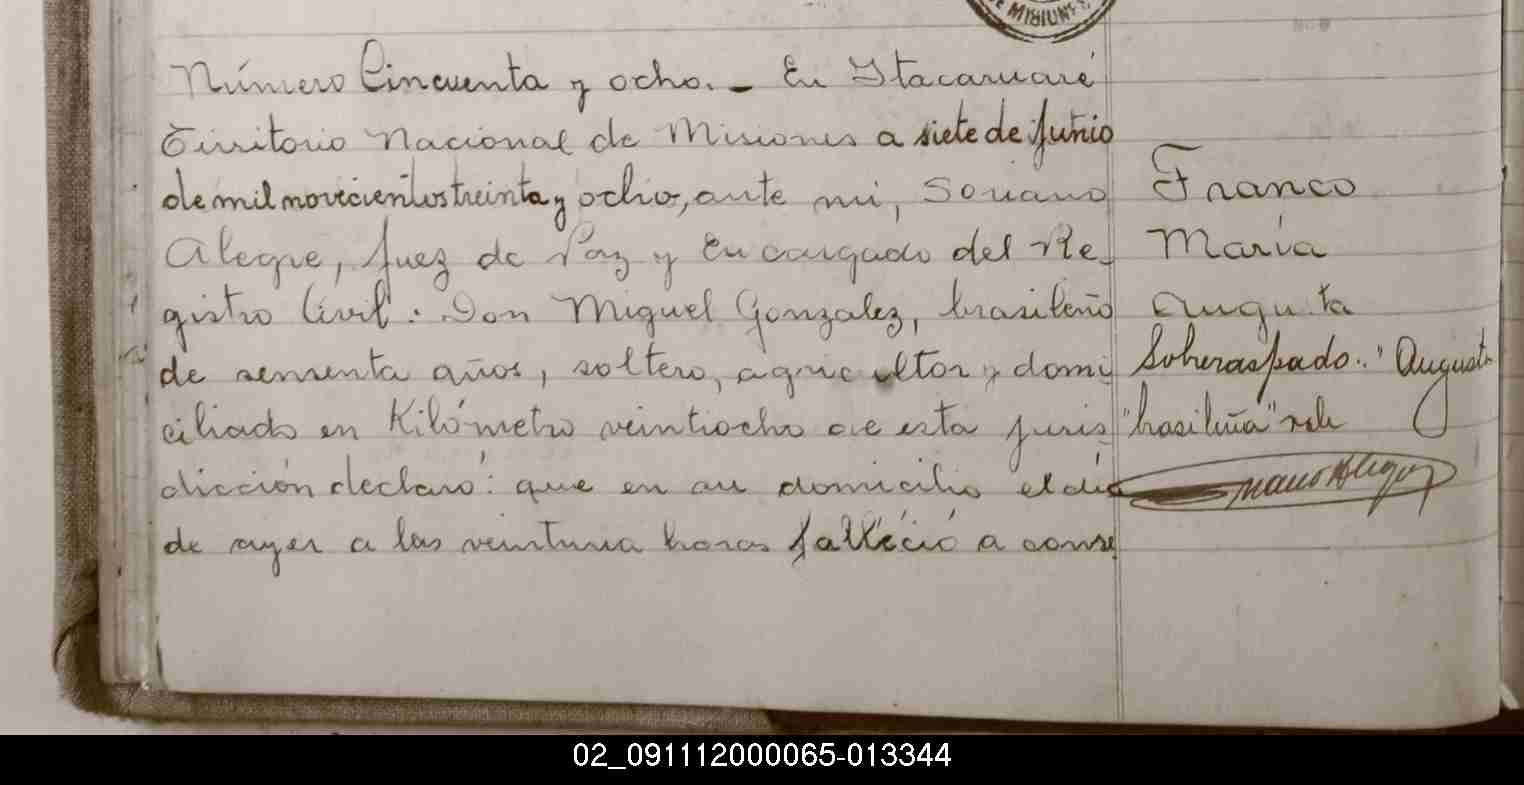 DE MISIONES
Número Cincuenta y ocho. - En Itacaruaré
Territorio Nacional de Misiones a siete de junio
de mil novecientos treinta y ocho, ante mi, Soriano
Alegre, Juez de Paz y Encargado del Re-
gistro Civil: Don Miguel Gonzalez, brasileño
de sensenta años, soltero, agricultor y domi
ciliado en Kilómetro veintiocho de esta juris
dicción declaró: que en su domicilio el día
de ayer a las veintuna horas falleció a conse
Franco
María
Augusta
Sobreraspado: "Augusta
"brasileña" vale
02_091112000065-013344